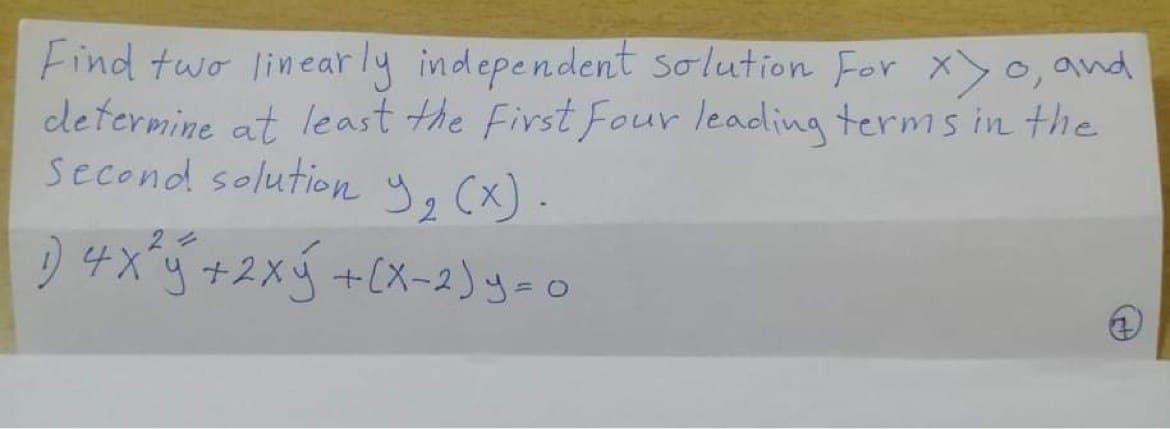 Find two linearly independent solution For x > 0, and
determine at least the First four leading terms in the
second solution y₂ (x).
1) 4x²y″ + 2xy′ + (x-2) y = 0
7